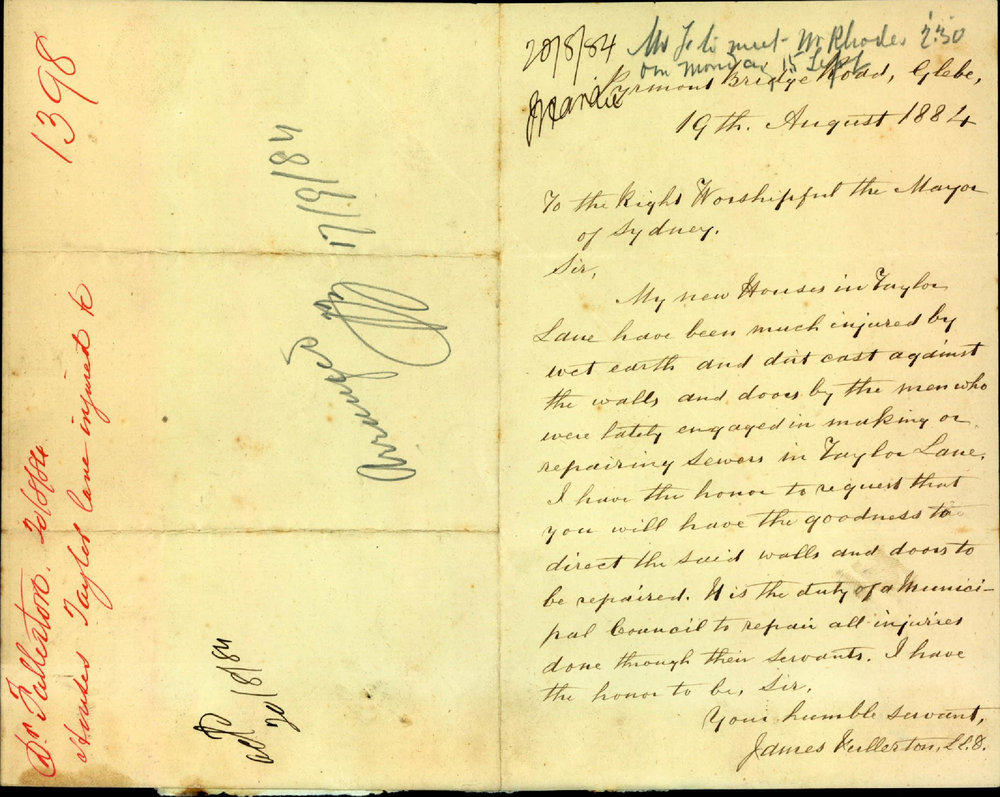 1398
Dr. Fullerton. 20/8/84
Houses Taylor Lane injured &c
17/9/84
20/8/84
20/8/84
meet Mr Rhodes 2.30
on Monday 15 Sept
Pyrmont Bridge Road, Glebe,
19th. August 1884
To the Right Worshipful the Mayor
of Sydney.
Sir,
My new Houses in Taylor
Lane have been much injured by
wet earth and dirt cast against
the walls and doors by the men who
were lately engaged in making or
repairing sewers in Taylor Lane.
I have the honor to request that
you will have the goodness to
direct the said walls and doors to
be repaired. It is the duty of a Munici-
pal Council to repair all injuries
done through their servants. I have
the honor to be, Sir,
Your humble servant,
James Fullerton, LL.D.